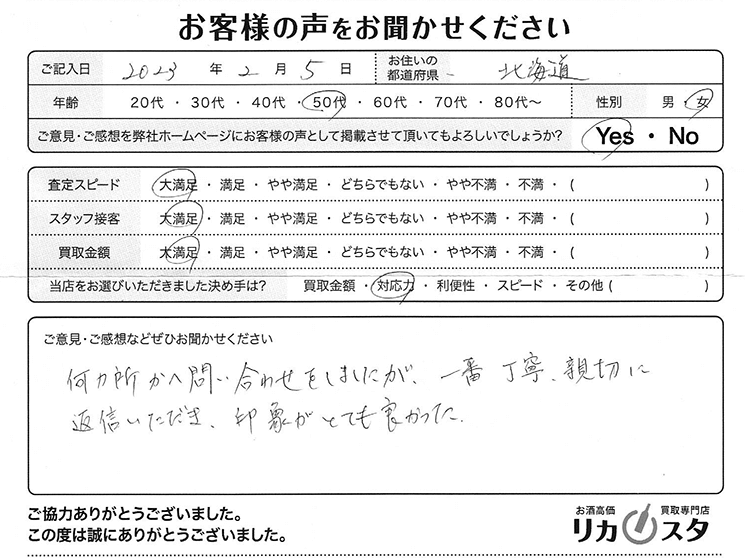 お客様の声をお聞かせください
ご記入日 2023 年 2 月 5 日 お住いの都道府県 北海道
年齢 20代 ・ 30代 ・ 40代 ・ 50代 ・ 60代 ・ 70代 ・ 80代〜 性別 男 ・ 女
ご意見・ご感想を弊社ホームページにお客様の声として掲載させて頂いてもよろしいでしょうか? Yes ・ No
査定スピード 大満足 ・ 満足 ・ やや満足 ・ どちらでもない ・ やや不満 ・ 不満 ・ ( )
スタッフ接客 大満足 ・ 満足 ・ やや満足 ・ どちらでもない ・ やや不満 ・ 不満 ・ ( )
買取金額 大満足 ・ 満足 ・ やや満足 ・ どちらでもない ・ やや不満 ・ 不満 ・ ( )
当店をお選びいただきました決め手は? 買取金額 ・ 対応力 ・ 利便性 ・ スピード ・ その他 ( )
ご意見・ご感想などぜひお聞かせください
何カ所かへ問い合わせをしましたが、一番丁寧、親切に
返信いただき、印象がとても良かった。
ご協力ありがとうございました。
この度は誠にありがとうございました。
お酒高価 買取専門店
リカスタ